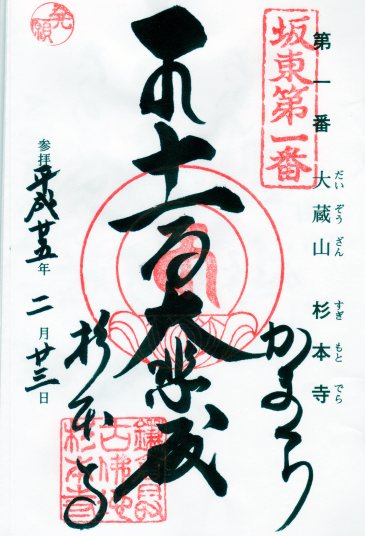 坂東第一番
第一番 大蔵山 杉本寺
だい ぞう ざん すぎ もと でら
かまくら
十一面大悲殿
杉本寺
参拝平成廿五年 二月廿三日
発願